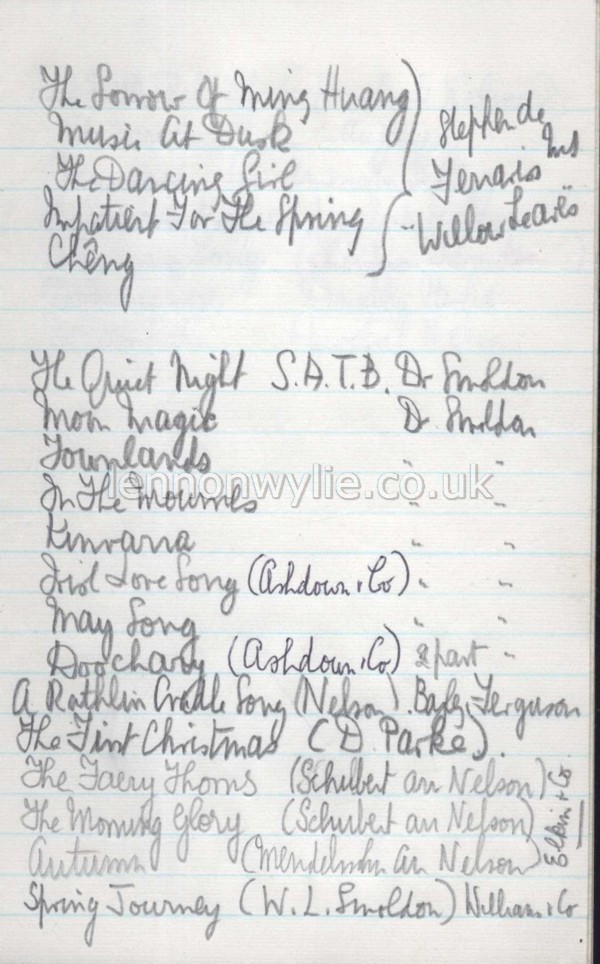 The Sorrow Of Ming Huang
Music At Dusk
The Dancing Girl
Impatient For The Spring
Chêng
Stephen de
Ferraris
"Willow Leaves"
The Quiet Night S.A.T.B. Dr Smoldon
Moon Magic Dr Smoldon
Townlands " "
In The Mournes " "
Kinvarra " "
Irish Love Song (Ashdown & Co) " "
May Song " "
Doochary (Ashdown & Co) 2 part "
A Rathlin Cradle Song (Nelson). Ferguson
The First Christmas (D. Parke).
The Faery Thorns (Schubert arr Nelson)
The Morning Glory (Schubert arr Nelson)
Autumn (Mendelssohn arr Nelson)
Elkin & Co.
Spring Journey (W. L. Smoldon) William & Co
lennonwylie.co.uk